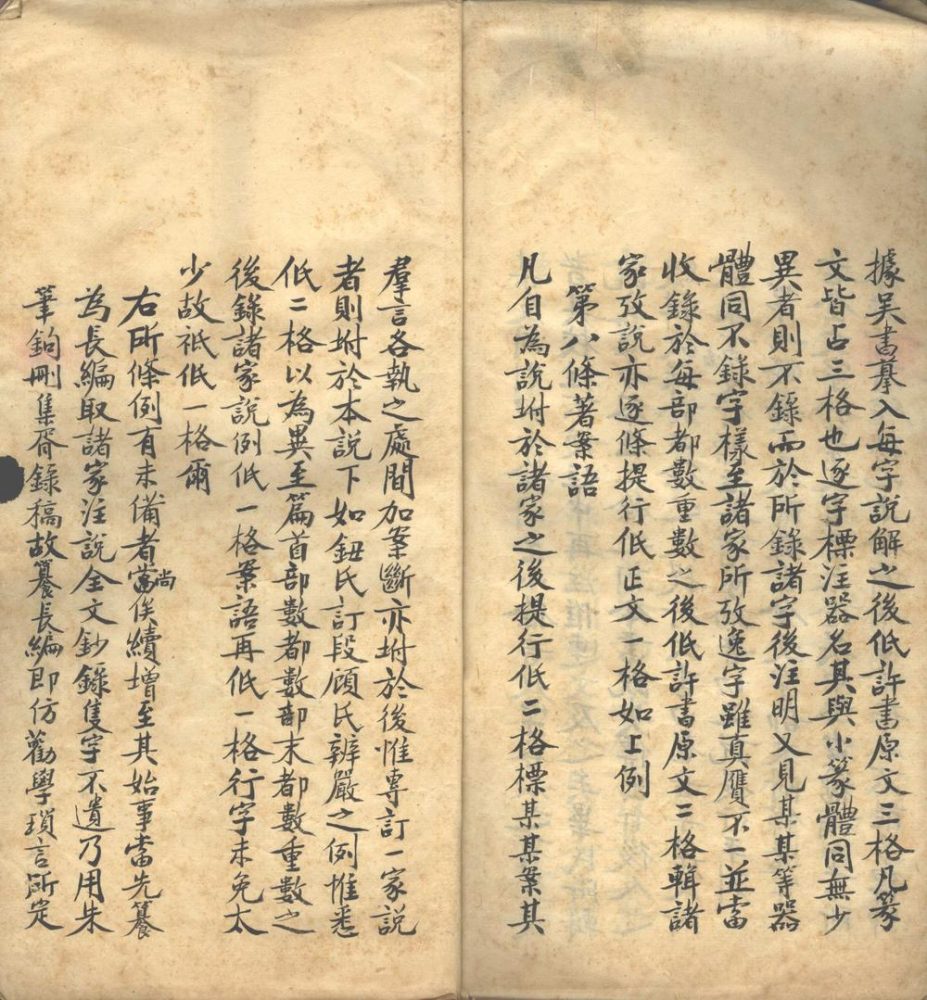 據吳書摹入每字說解之後低許書原文三格凡篆
文皆占三格也逐字標注器名其與小篆體同無少
異者則不錄而於所錄諸字後注明又見某某等器
體同不錄字樣至諸家所攷逸字雖真贋不一並當
收錄於每部都數重數之後低許書原文二格輯諸
家攷說亦逐條提行低正文一格如上例
第八條著案語
凡自為說坿於諸家之後提行低二格標某某案其
羣言各執之處間加案斷亦坿於後惟專訂一家說
者則坿於本說下如鈕氏訂段顧氏辨嚴之例惟悉
低二格以為異至篇首部數都數部末都數重數之
後錄諸家說例低一格案語再低一格行字未免太
少故祇低一格爾
右所條例有未備者當尚俟續增至其始事當先纂
為長編取諸家注說全文鈔錄隻字不遺乃用朱
筆鉤刪集胥錄稿故纂長編即仿勸學瑣言所定